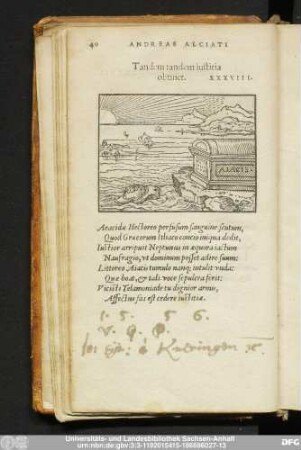 40 ANDREAE ALCIATI
Tandem tandem iustitia
obtinet. XXXVIII.
AIACIS
Aeacidae Hectoreo perfusum sanguine scutum,
Quod Graecorum Ithaco concio iniqua dedit,
Iustior arripuit Neptunus in aequora iactum
Naufragio, ut dominum posset adire suum:
Littoreo Aiacis tumulo namque intulit unda:
Quae boat, & tali voce sepulcra ferit:
Vicisti Telamoniade tu dignior armis,
Affectus fas est cedere iustitiae.
1. 5. 5 6.
V. Q. P.
Universitäts- und Landesbibliothek Sachsen-Anhalt
urn:nbn:de:gbv:3:3-1192015415-186696027-13
DFG